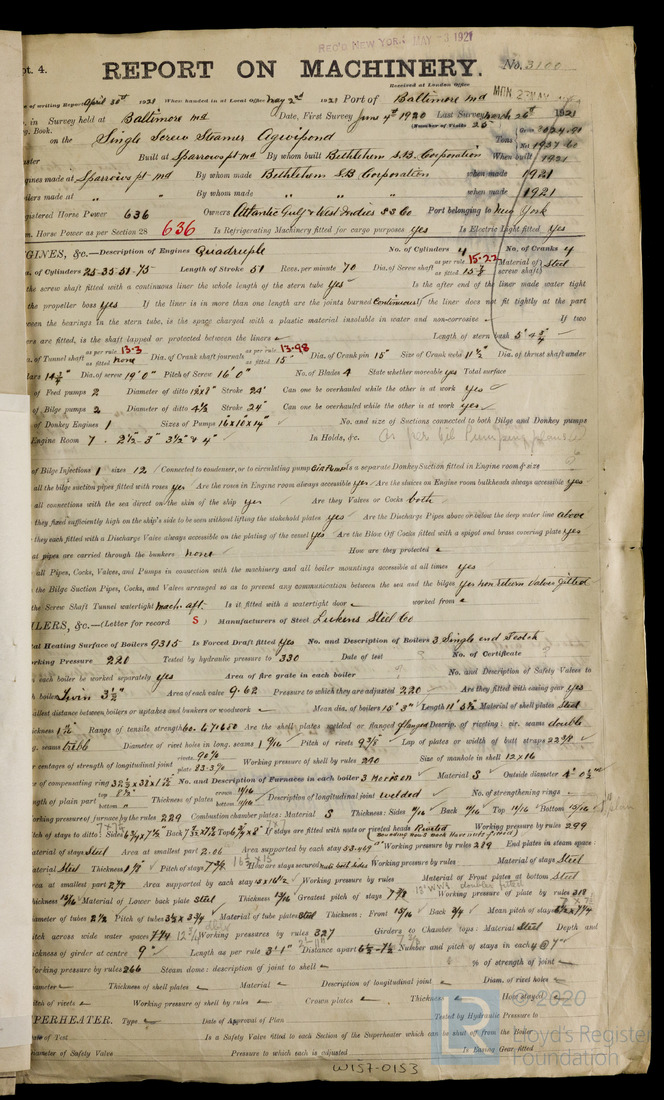 REC'D NEW YORK MAY 3 1921
pt. 4.
REPORT ON MACHINERY.
No. 3100
Received at London Office
of writing Report April 30th 1921 When handed in at Local Office May 2nd 1921 Port of Baltimore Md
in Survey held at Baltimore Md Date, First Survey June 4th 1920 Last Survey March 26th 1921
g. Book. (Number of Visits 25
on the Single Screw Steamer Agwipond
Tons Gross 3024.91 Net 1937.60
ster Built at Sparrows Pt Md By whom built Bethlehem S.B. Corporation When built 1921
gines made at Sparrows Pt Md By whom made Bethlehem S.B. Corporation when made 1921
ilers made at " " By whom made " " " when made 1921
gistered Horse Power 636 Owners Atlantic Gulf & West Indies SS Co Port belonging to New York
m. Horse Power as per Section 28 636 Is Refrigerating Machinery fitted for cargo purposes yes Is Electric Light fitted yes
GINES, &c.—Description of Engines Quadruple No. of Cylinders 4 No. of Cranks 4
a. of Cylinders 25-35-51-75 Length of Stroke 51 Revs. per minute 70 Dia. of Screw shaft as per rule 15.22 as fitted Material of screw shaft Steel
the screw shaft fitted with a continuous liner the whole length of the stern tube yes Is the after end of the liner made water tight
the propeller boss yes If the liner is in more than one length are the joints burned Continuous If the liner does not fit tightly at the part
ween the bearings in the stern tube, is the space charged with a plastic material insoluble in water and non-corrosive If two
ers are fitted, is the shaft lapped or protected between the liners Length of stern bush
a. of Tunnel shaft as per rule 13.3 as fitted none Dia. of Crank shaft journals as per rule 13.98 as fitted 15" Dia. of Crank pin 15" Size of Crank webs 11½ Dia. of thrust shaft under
lars 14¾" Dia. of screw 19' 0" Pitch of Screw 16' 0" No. of Blades 4 State whether moveable yes Total surface
of Feed pumps 2 Diameter of ditto 12x8" Stroke 24" Can one be overhauled while the other is at work yes
of Bilge pumps 2 Diameter of ditto 4½ Stroke 24" Can one be overhauled while the other is at work yes
of Donkey Engines 1 Sizes of Pumps 16x10x14" No. and size of Suctions connected to both Bilge and Donkey pumps
Engine Room 7 - 2½-3" 3½" & 4" In Holds, &c. As per oil Pumping plans
of Bilge Injections 1 sizes 12 Connected to condenser, or to circulating pump Cir Pump Is a separate Donkey Suction fitted in Engine room & size
all the bilge suction pipes fitted with roses yes Are the roses in Engine room always accessible yes Are the sluices on Engine room bulkheads always accessible yes
all connections with the sea direct on the skin of the ship yes Are they Valves or Cocks both
they fixed sufficiently high on the ship's side to be seen without lifting the stokehold plates yes Are the Discharge Pipes above or below the deep water line above
they each fitted with a Discharge Valve always accessible on the plating of the vessel yes Are the Blow Off Cocks fitted with a spigot and brass covering plate yes
at pipes are carried through the bunkers none How are they protected
all Pipes, Cocks, Valves, and Pumps in connection with the machinery and all boiler mountings accessible at all times yes
the Bilge Suction Pipes, Cocks, and Valves arranged so as to prevent any communication between the sea and the bilges yes non return valves fitted
the Screw Shaft Tunnel watertight mach. aft. Is it fitted with a watertight door worked from
ILERS, &c.—(Letter for record S) Manufacturers of Steel Lukens Steel Co
tal Heating Surface of Boilers 9315 Is Forced Draft fitted yes No. and Description of Boilers 3 Single end Scotch
rking Pressure 220 Tested by hydraulic pressure to 330 Date of test No. of Certificate
n each boiler be worked separately yes Area of fire grate in each boiler No. and Description of Safety Valves to
h boiler Twin 3½" Area of each valve 9.62 Pressure to which they are adjusted 220 Are they fitted with easing gear yes
allest distance between boilers or uptakes and bunkers or woodwork Mean dia. of boilers 15' 3" Length Material of shell plates Steel
ickness Range of tensile strength Are the shell plates welded or flanged flanged Descrip. of riveting: cir. seams double
g. seams treble Diameter of rivet holes in long. seams 1 9/16 Pitch of rivets Lap of plates or width of butt straps
centages of strength of longitudinal joint rivets 90% plate Working pressure of shell by rules 240 Size of manhole in shell 12x16
e of compensating ring No. and Description of Furnaces in each boiler 3 Morison Material S Outside diameter
gth of plain part top bottom Thickness of plates crown bottom Description of longitudinal joint welded No. of strengthening rings
rking pressure of furnace by the rules 229 Combustion chamber plates: Material S Thickness: Sides Back Top Bottom
tch of stays to ditto: Sides Back Top If stays are fitted with nuts or riveted heads Riveted Working pressure by rules 299
aterial of stays Steel Area at smallest part 2.06 Area supported by each stay Working pressure by rules 219 End plates in steam space:
aterial Steel Thickness Pitch of stays How are stays secured Working pressure by rules Material of stays Steel
ea at smallest part Area supported by each stay Working pressure by rules Material of Front plates at bottom Steel
ickness 13/16 Material of Lower back plate Steel Thickness Greatest pitch of stays Working pressure of plate by rules
ameter of tubes 2½ Pitch of tubes Material of tube plates Steel Thickness: Front 13/16 Back ¾ Mean pitch of stays
itch across wide water spaces Working pressures by rules 327 Girders to Chamber tops: Material Steel Depth and
ickness of girder at centre 9" Length as per rule 3' 1" Distance apart Number and pitch of stays in each
orking pressure by rules 266 Steam dome: description of joint to shell % of strength of joint
ameter Thickness of shell plates Material Description of longitudinal joint Diam. of rivet holes
itch of rivets Working pressure of shell by rules Crown plates Thickness How stayed
PERHEATER. Type Date of Approval of Plan Tested by Hydraulic Pressure to
te of Test Is a Safety Valve fitted to each Section of the Superheater which can be shut off from the Boiler
iameter of Safety Valve Pressure to which each is adjusted Is Easing Gear fitted
© 2020
Lloyd's Register
Foundation
LR
W157-0153